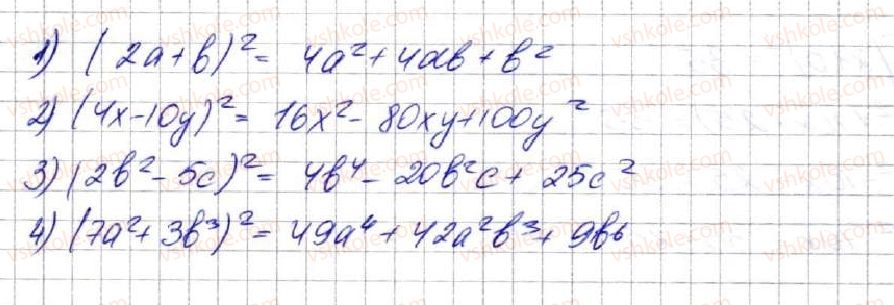 1) (2a+b)² = 4a² + 4ab + b²
2) (4x-10y)² = 16x² - 80xy + 100y²
3) (2b² - 5c)² = 4b⁴ - 20b²c + 25c²
4) (7a² + 3b³)² = 49a⁴ + 42a²b³ + 9b⁶